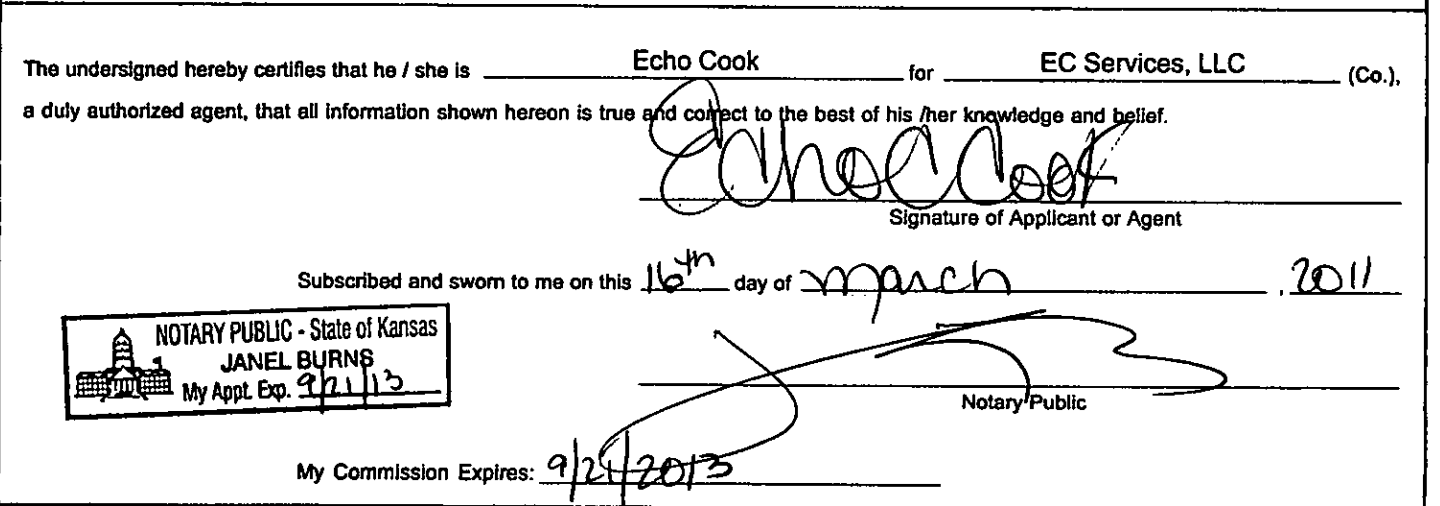 The undersigned hereby certifies that he / she is Echo Cook for EC Services, LLC (Co.),
a duly authorized agent, that all information shown hereon is true and correct to the best of his /her knowledge and belief.
Echo C Cook
Signature of Applicant or Agent
Subscribed and sworn to me on this 16th day of March , 2011
NOTARY PUBLIC - State of Kansas
JANEL BURNS
My Appt. Exp. 9/21/13
Notary Public
My Commission Expires: 9/21/2013